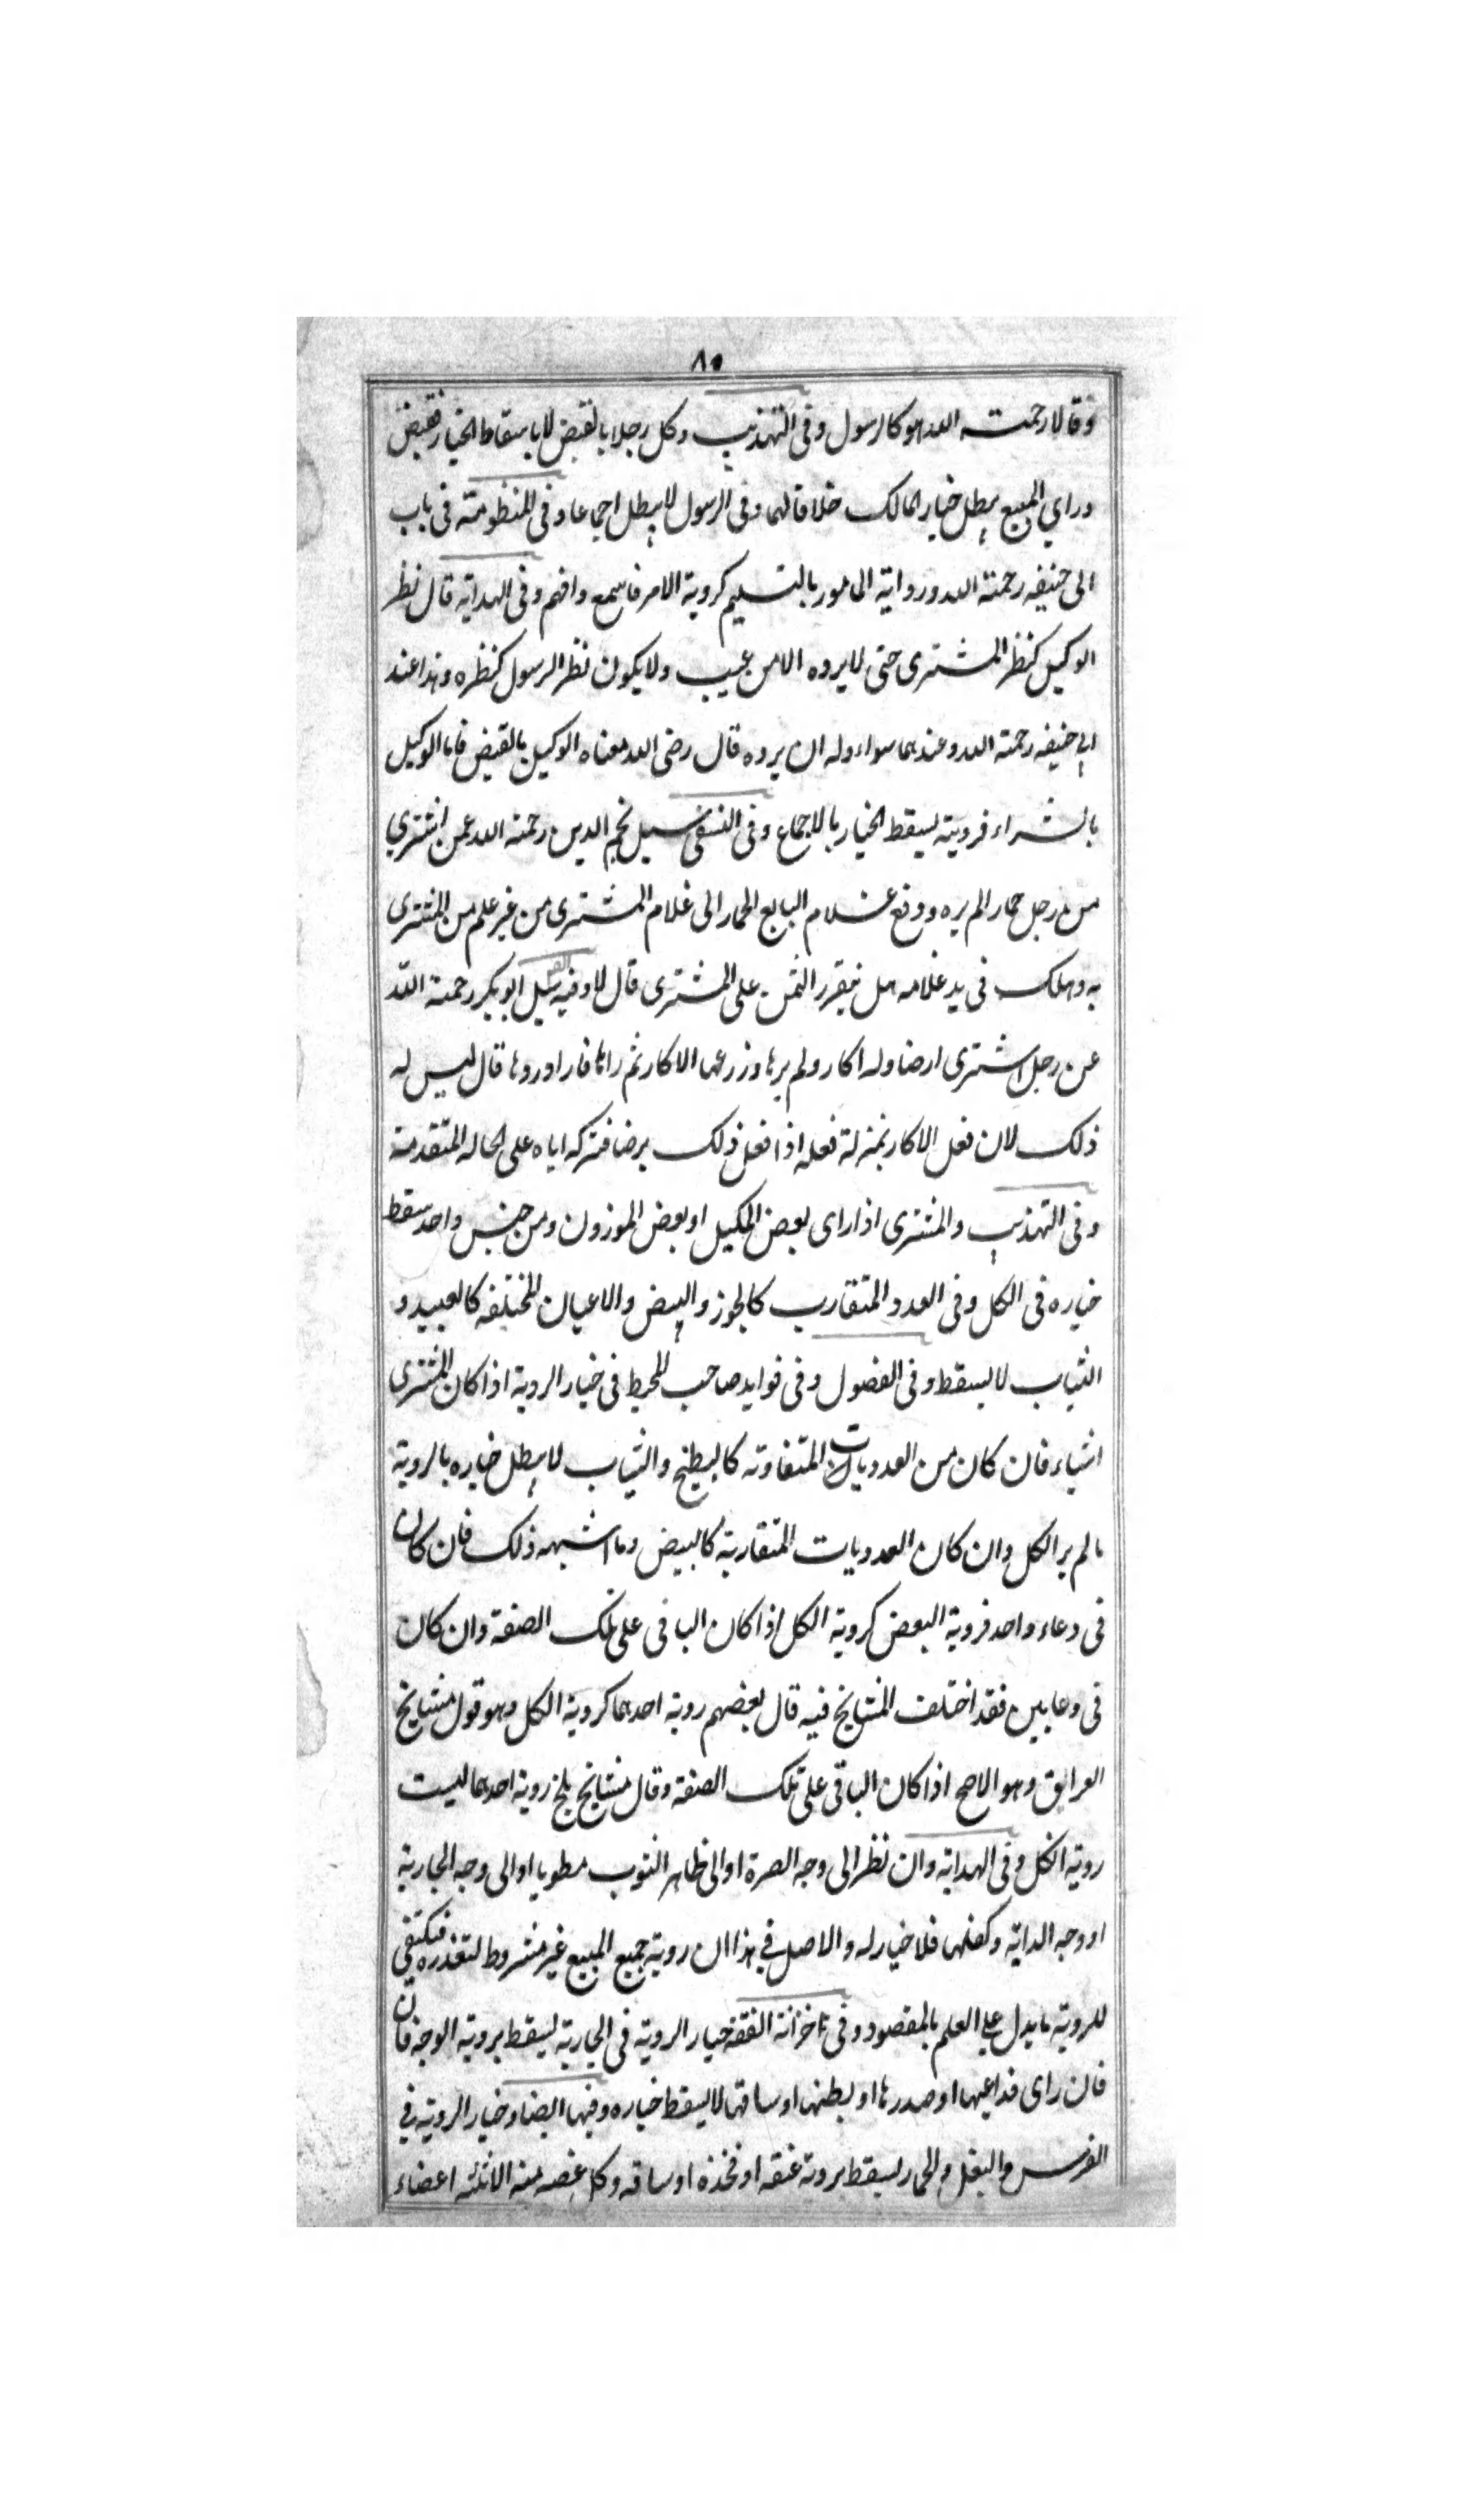 ٨٠
وقالا رحمته الله هو كالرسول وفى التهذيب وكل رجلا بالقبض لا باسقاط الخيار فقبض
وراي المبيع يبطل خيار المالك خلافا لهما وفى الرسول لا يبطل اجماعا وفى المنظومته فى باب
ابى حنيفه رحمته الله وروايته المامور بالتسليم كروية الامر فاسمع وافهم وفى الهدايه قال نظر
الوكيل كنظر المشترى حتى لا يرده الا من عيب ولا يكون نظر الرسول كنظره وهذا عند
ابي حنيفه رحمته الله وعندهما سواء وله ان يرده قال رضى الله معناه الوكيل بالقبض فاما الوكيل
بالشراء فرويته يسقط الخيار بالاجماع وفى النسفى سيل نجم الدين رحمته الله عمن اشتري
من رجل حمارا لم يره ودفع غلام البايع الحمار الى غلام المشترى من غير علم من المشترى
به وهلك فى يد غلامه هل يتقرر الثمن على المشترى قال لا وفيه سيل ابو بكر رحمته الله
عن رجل اشترى ارضا وله اكار ولم يرها وزرعها الاكار ثم راها فاراد ردها قال ليس له
ذلك لان فعل الاكار بمنزلة فعله اذا فعل ذلك برضا فتركه اياه على الحاله المتقدمة
وفى التهذيب والمشترى اذا راى بعض المكيل او بعض الموزون ومن جنس واحد سقط
خياره فى الكل وفى العدد المتقارب كالجوز والبيض والاعيان المختلفه كالعبيد و
الثياب لا يسقط وفى الفصول وفى فوايد صاحب المحيط فى خيار الروية اذا كان المشترى
اشياء فان كان من العدديات المتفاوته كالبطيخ والثياب لا يبطل خياره بالروية
مالم ير الكل وان كان العدديات المتقاربة كالبيض وما اشبهه ذلك فان كان
فى دعاء واحد فروية البعض كروية الكل اذا كان الباقى على تلك الصفة وان كان
فى وعايين فقد اختلف المشايخ فيه قال بعضهم روية احدهما كروية الكل وهو قول مشايخ
العرايق وهو الاصح اذا كان الباقى على تلك الصفة وقال مشايخ بلخ روية احدهما ليست
روية الكل وفى الهدايه وان نظر الى وجه الصرة او الى ظاهر الثوب مطويا او الى وجه الجارية
او وجه الدابه وكفلها فلا خيار له والاصل في هذا ان روية جميع المبيع غير مشروط لتعذره فيكتفي
للروية ما يدل علي العلم بالمقصود وفى خزانة الفقه خيار الروية فى الجارية يسقط بروية الوجه فان
فان راى ذراعيها او صدرها او بطنها او ساقها لا يسقط خياره وفيها ايضا وخيار الروية في
الفرس والبغل والحمار يسقط بروية عنقه او فخذه او ساقه وكل عضه منه الا ثلثه اعضاء